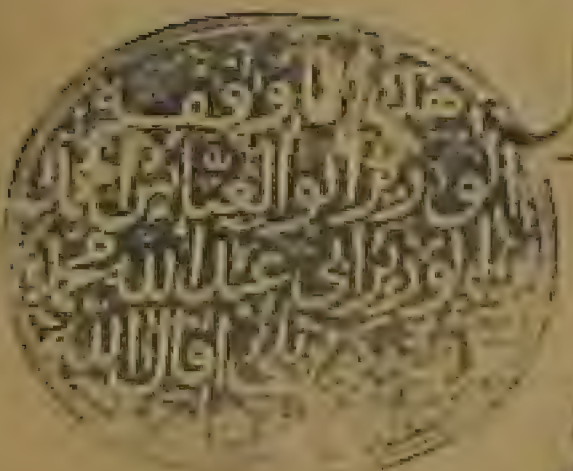 هذا مما وقفه
الوزير ابو العباس احمد
بن الوزير ابي عبد الله محمد
اقال الله